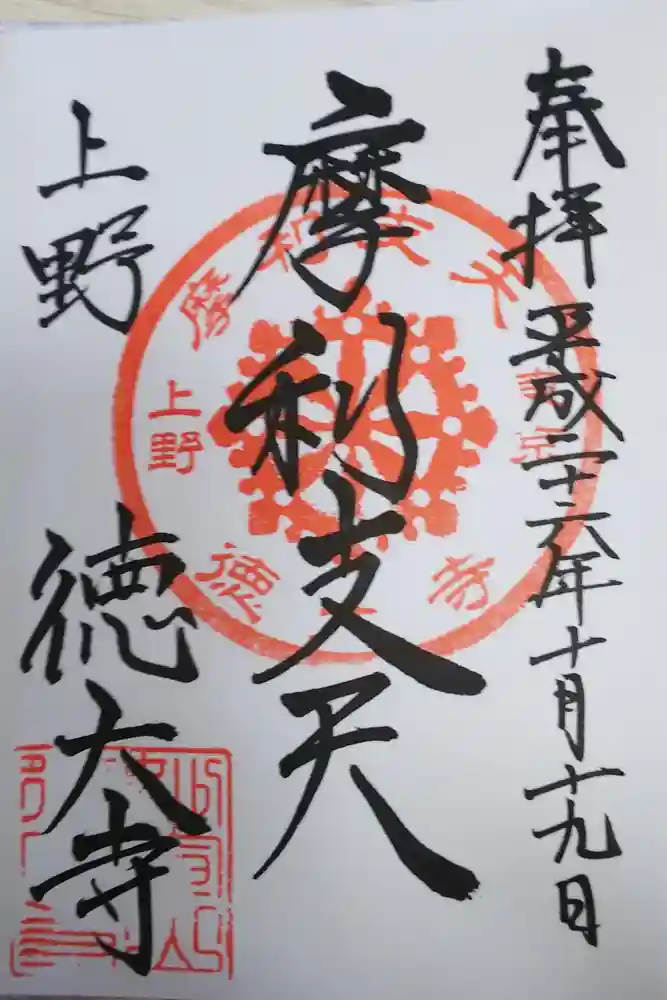 奉拝 平成二十六年十月十九日
摩利支天
上野 徳大寺
摩利支天
東京
上野
徳大寺